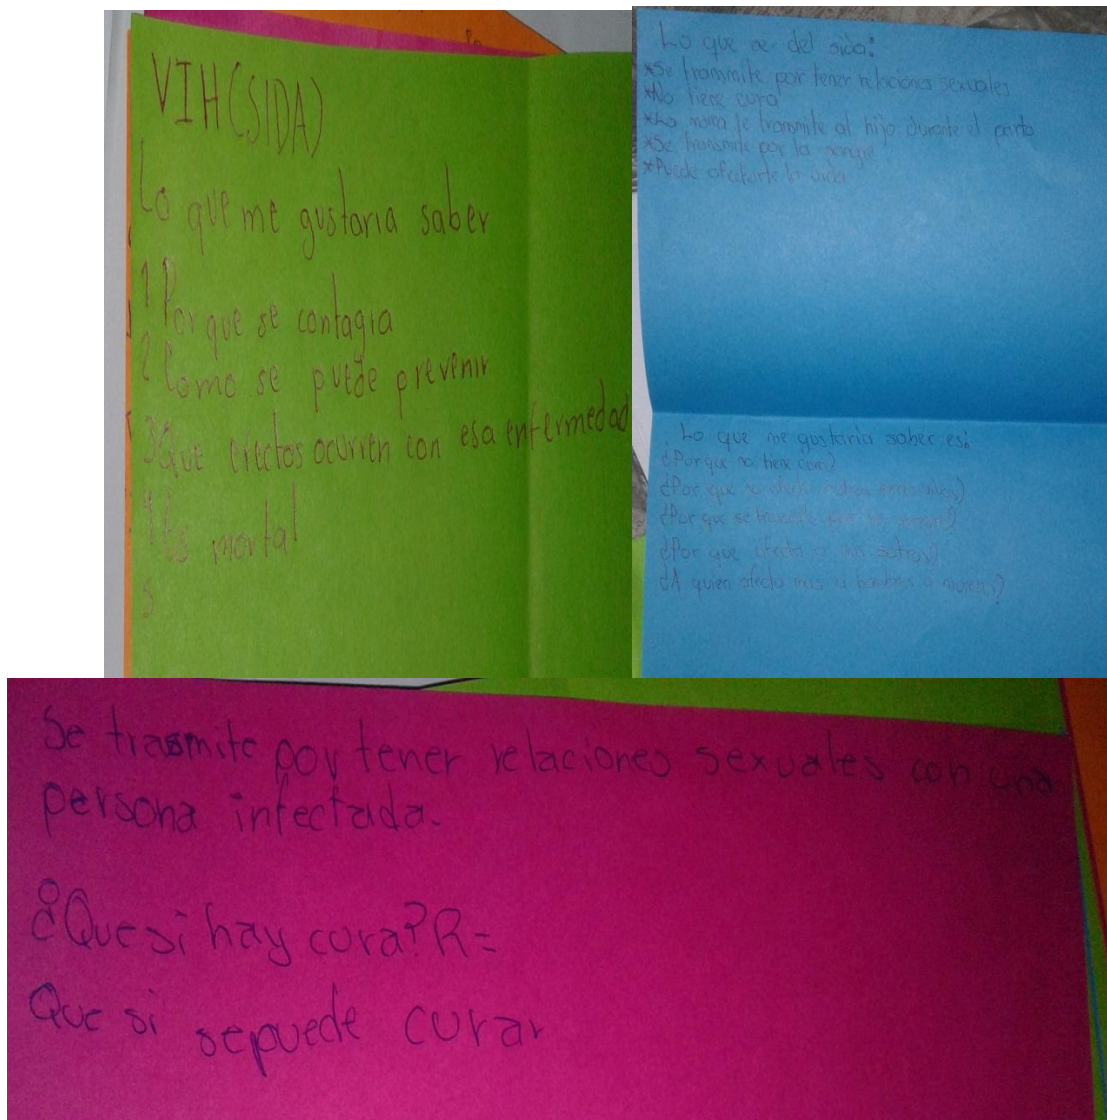 VIH(SIDA)
Lo que me gustaria saber
1 Por que se contagia
2 Como se puede prevenir
3 Que efectos ocurren con esa enfermedad
4 Es mortal
5
Lo que se del sida:
*Se transmite por tener relaciones sexuales
*No tiene cura
*La mama le transmite al hijo durante el parto
*Se transmite por la sangre
*Puede afectarte la vida
Lo que me gustaria saber es:
¿Por que no tiene cura?
¿Por que no afecta a otros
¿Por que se transmite por la
¿Por que afecta a
¿A quien afecta mas a hombres o mujeres?
Se trasmite por tener relaciones sexuales con una
persona infectada.
¿Que si hay cura? R=
Que si sepuede curar